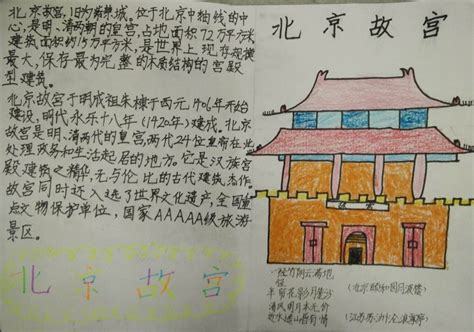 北京故宫,旧为紫禁城,位于北京中轴线的中
心,是明、清两朝的皇宫,占地面积72万平方米
建筑面积约15万平方米,是世界上现存规模
最大,保存最为完整的木质结构的宫殿
型建筑。
北京故宫于明成祖朱棣于四元1406年开始
建设,明代永乐十八年(1420年)建成。北京
故宫是明、清两代的皇宫,两代24位皇帝在此
处理政务和生活起居的地方。它是汉族宫
殿建筑之精华,无与伦比的古代建筑杰作。
故宫同时还入选了世界文化遗产,全国重
点文物保护单位,国家AAAAA级旅游
景区。
北京故宫
北京故宫
一径竹阴云满地
半帘花影月笼沙
(北京颐和园月波楼)
清风明月本无价
近水远山皆有情
(江苏苏州沧浪亭)